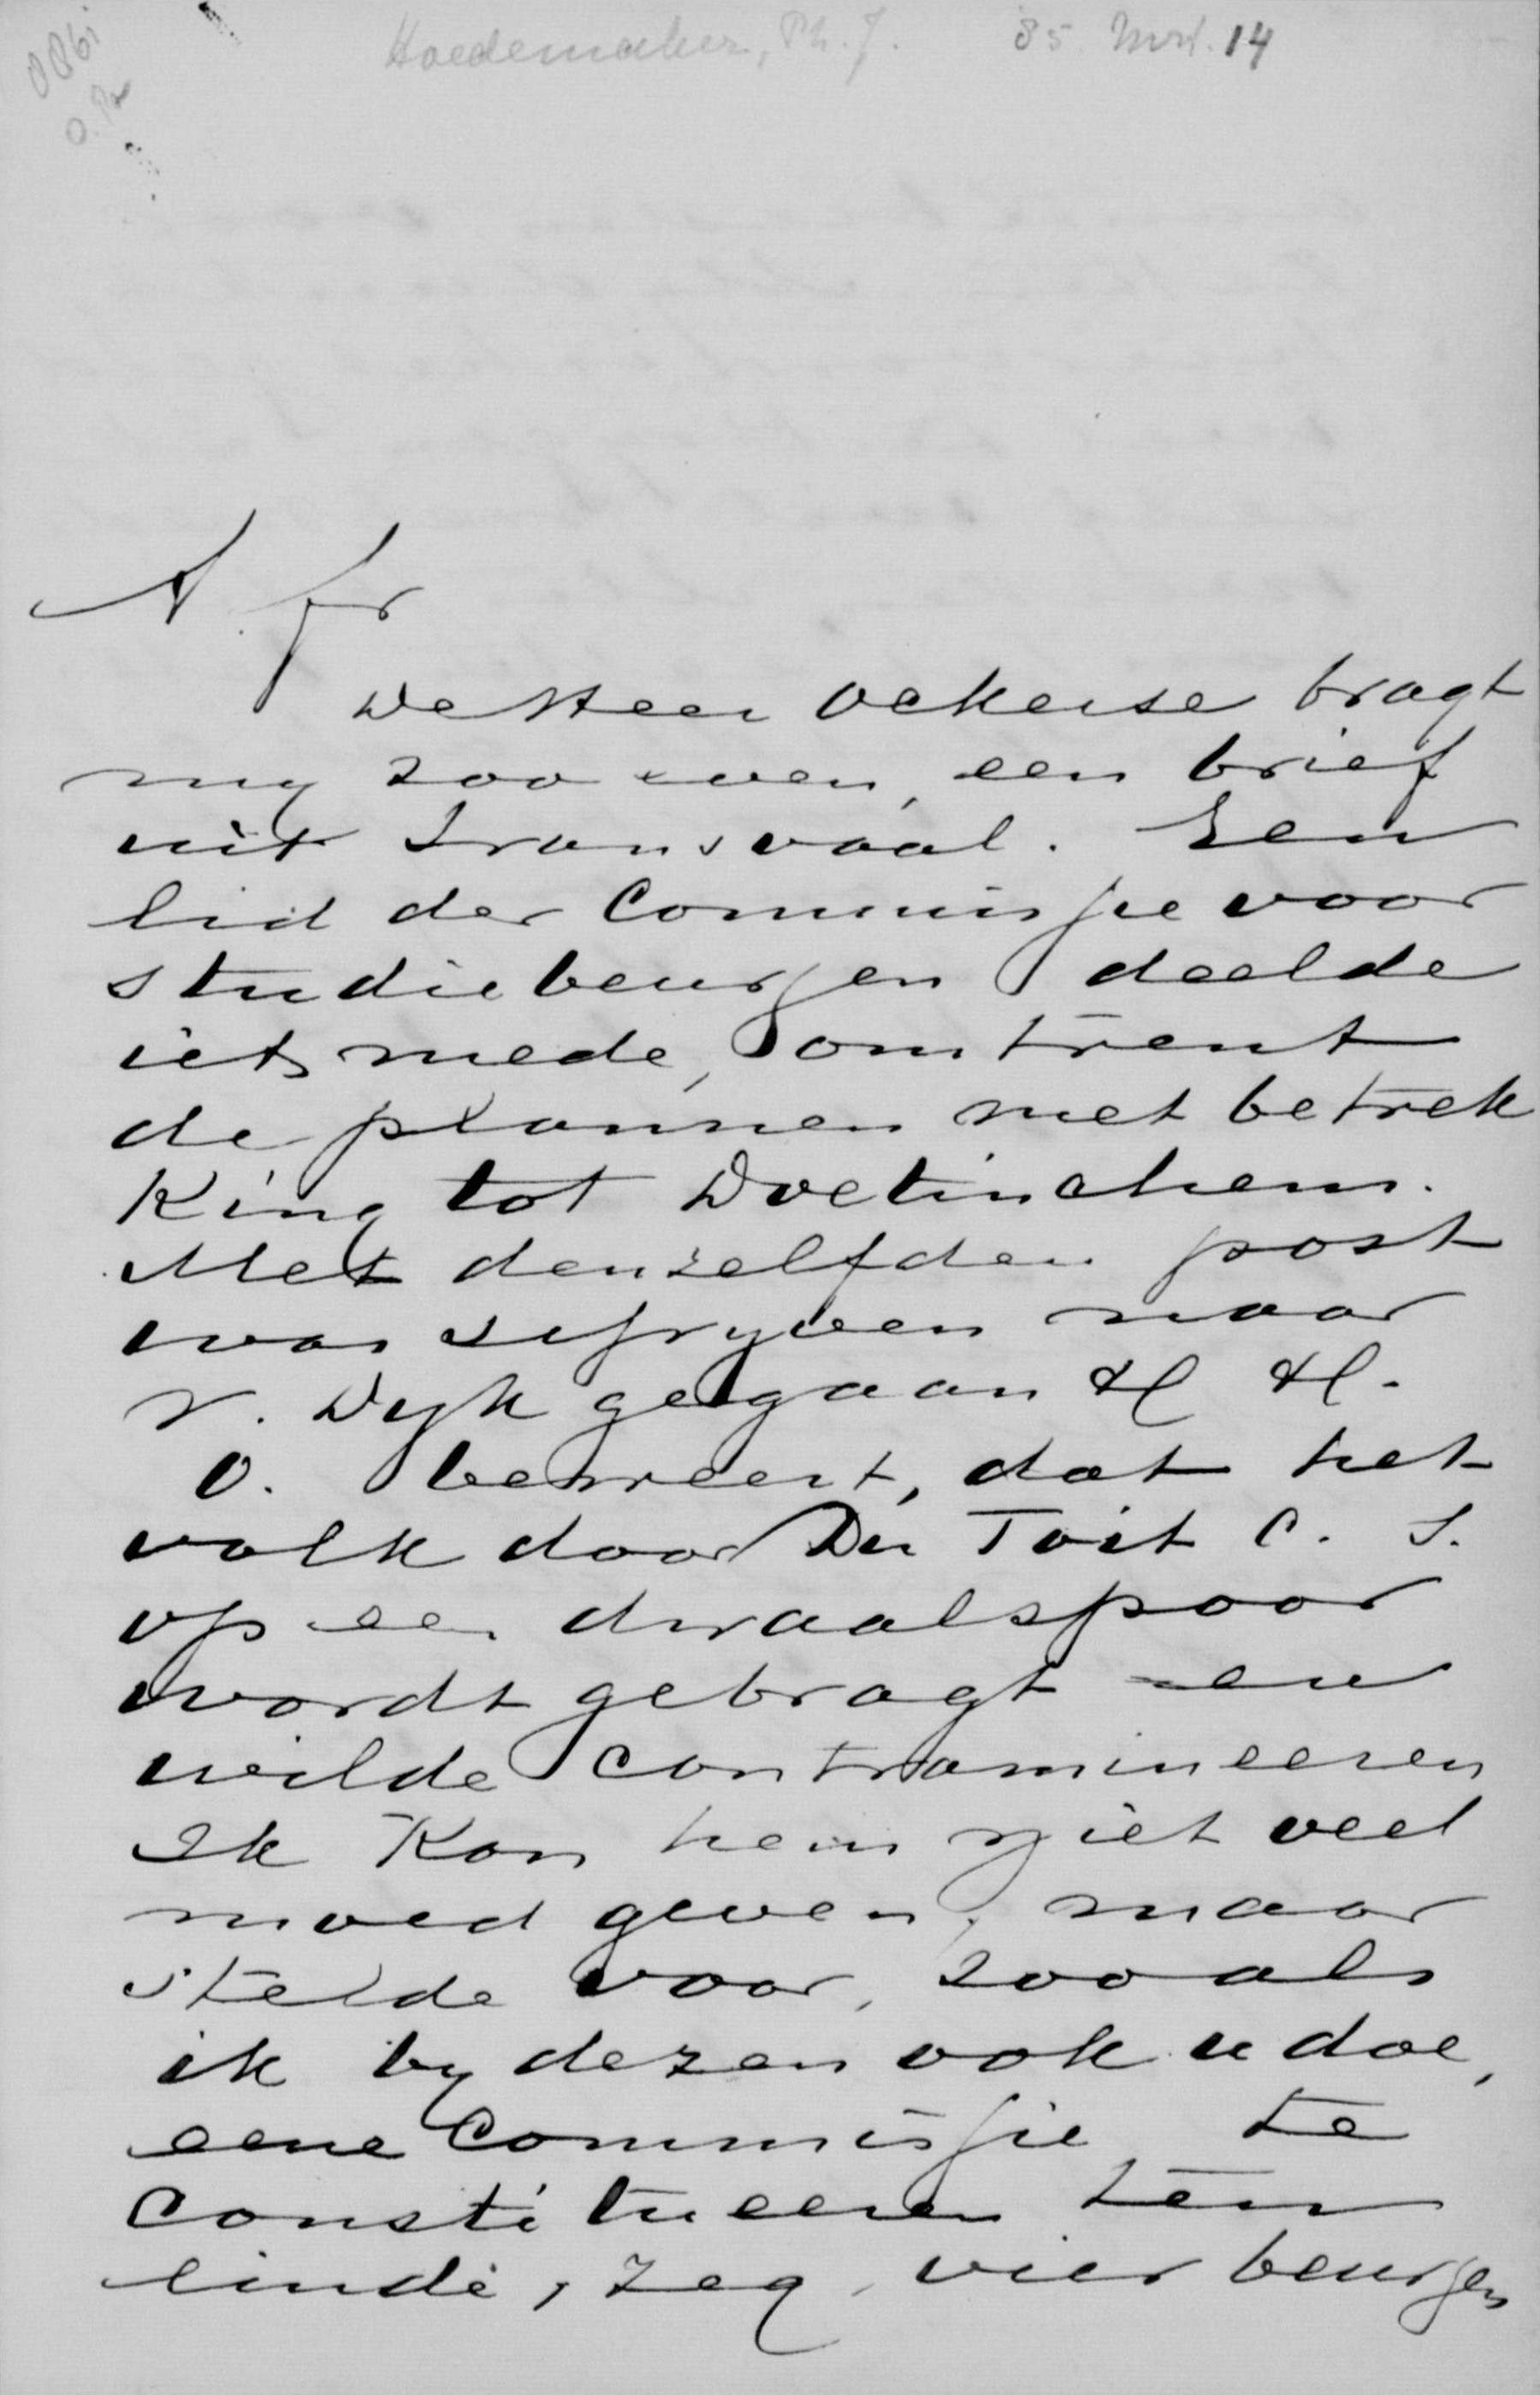 Hoedemaker, Ph. J. 85. Mrt. 14
A. fr
De Heer Ockerse bragt
my zoo even, een brief
uit Transvaal. Een
lid der Commissie voor
studiebeurssen deelde
iets mede, omtrent
de plannen met betrek
king tot Doetinchem.
Met denzelfden post
was schryven naar
v. Dyk gegaan
O. beweert, dat het
volk door Du Toit C. S.
op een dwaalspoor
wordt gebragt en
wilde contramineeren
Ik kon hem niet veel
moed geven, maar
stelde voor, zooals
ik by dezen ook u doe,
eene Commissie te
constitueeren ten
einde, zeg, vier beurssen